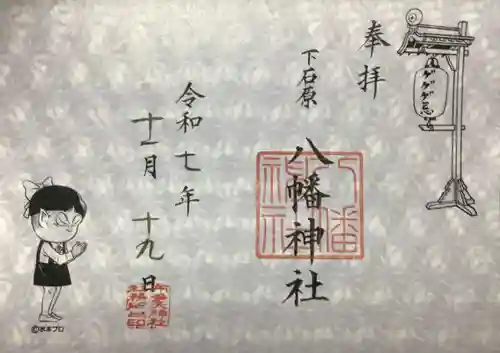 奉拝
ゲゲゲ忌
下石原
八幡神社
八幡神社
令和七年
十一月十九日
©水木プロ